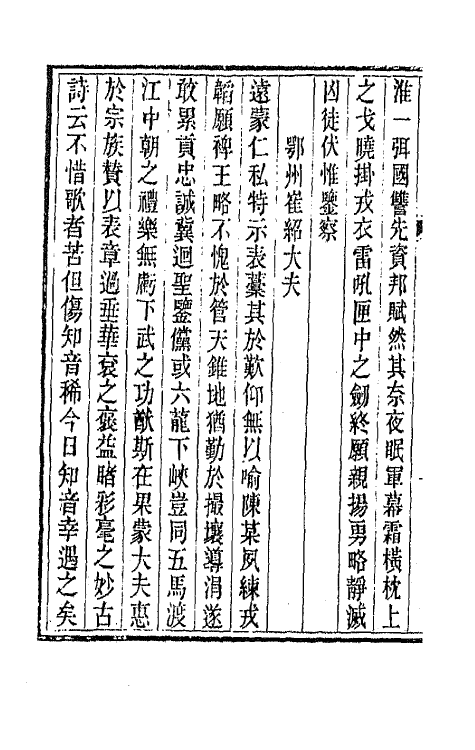 淮一弭國讐先資邦賦然其奈夜眠軍幕霜橫枕上
之戈曉掛戎衣雷吼匣中之劒終願親揚勇略靜滅
囚徒伏惟鑒察
鄂州崔紹大夫
遠蒙仁私特示表藁其於歎仰無以喻陳某夙練戎
韜願裨王略不愧於管天錐地猶勤於撮壤導涓遂
敢累貢忠誠冀迴聖鑒儻或六龍下峽豈同五馬渡
江中朝之禮樂無虧下武之功猷斯在果蒙大夫惠
於宗族賛以表章過垂華袞之褒益睹彩毫之妙古
詩云不惜歌者苦但傷知音稀今日知音幸遇之矣